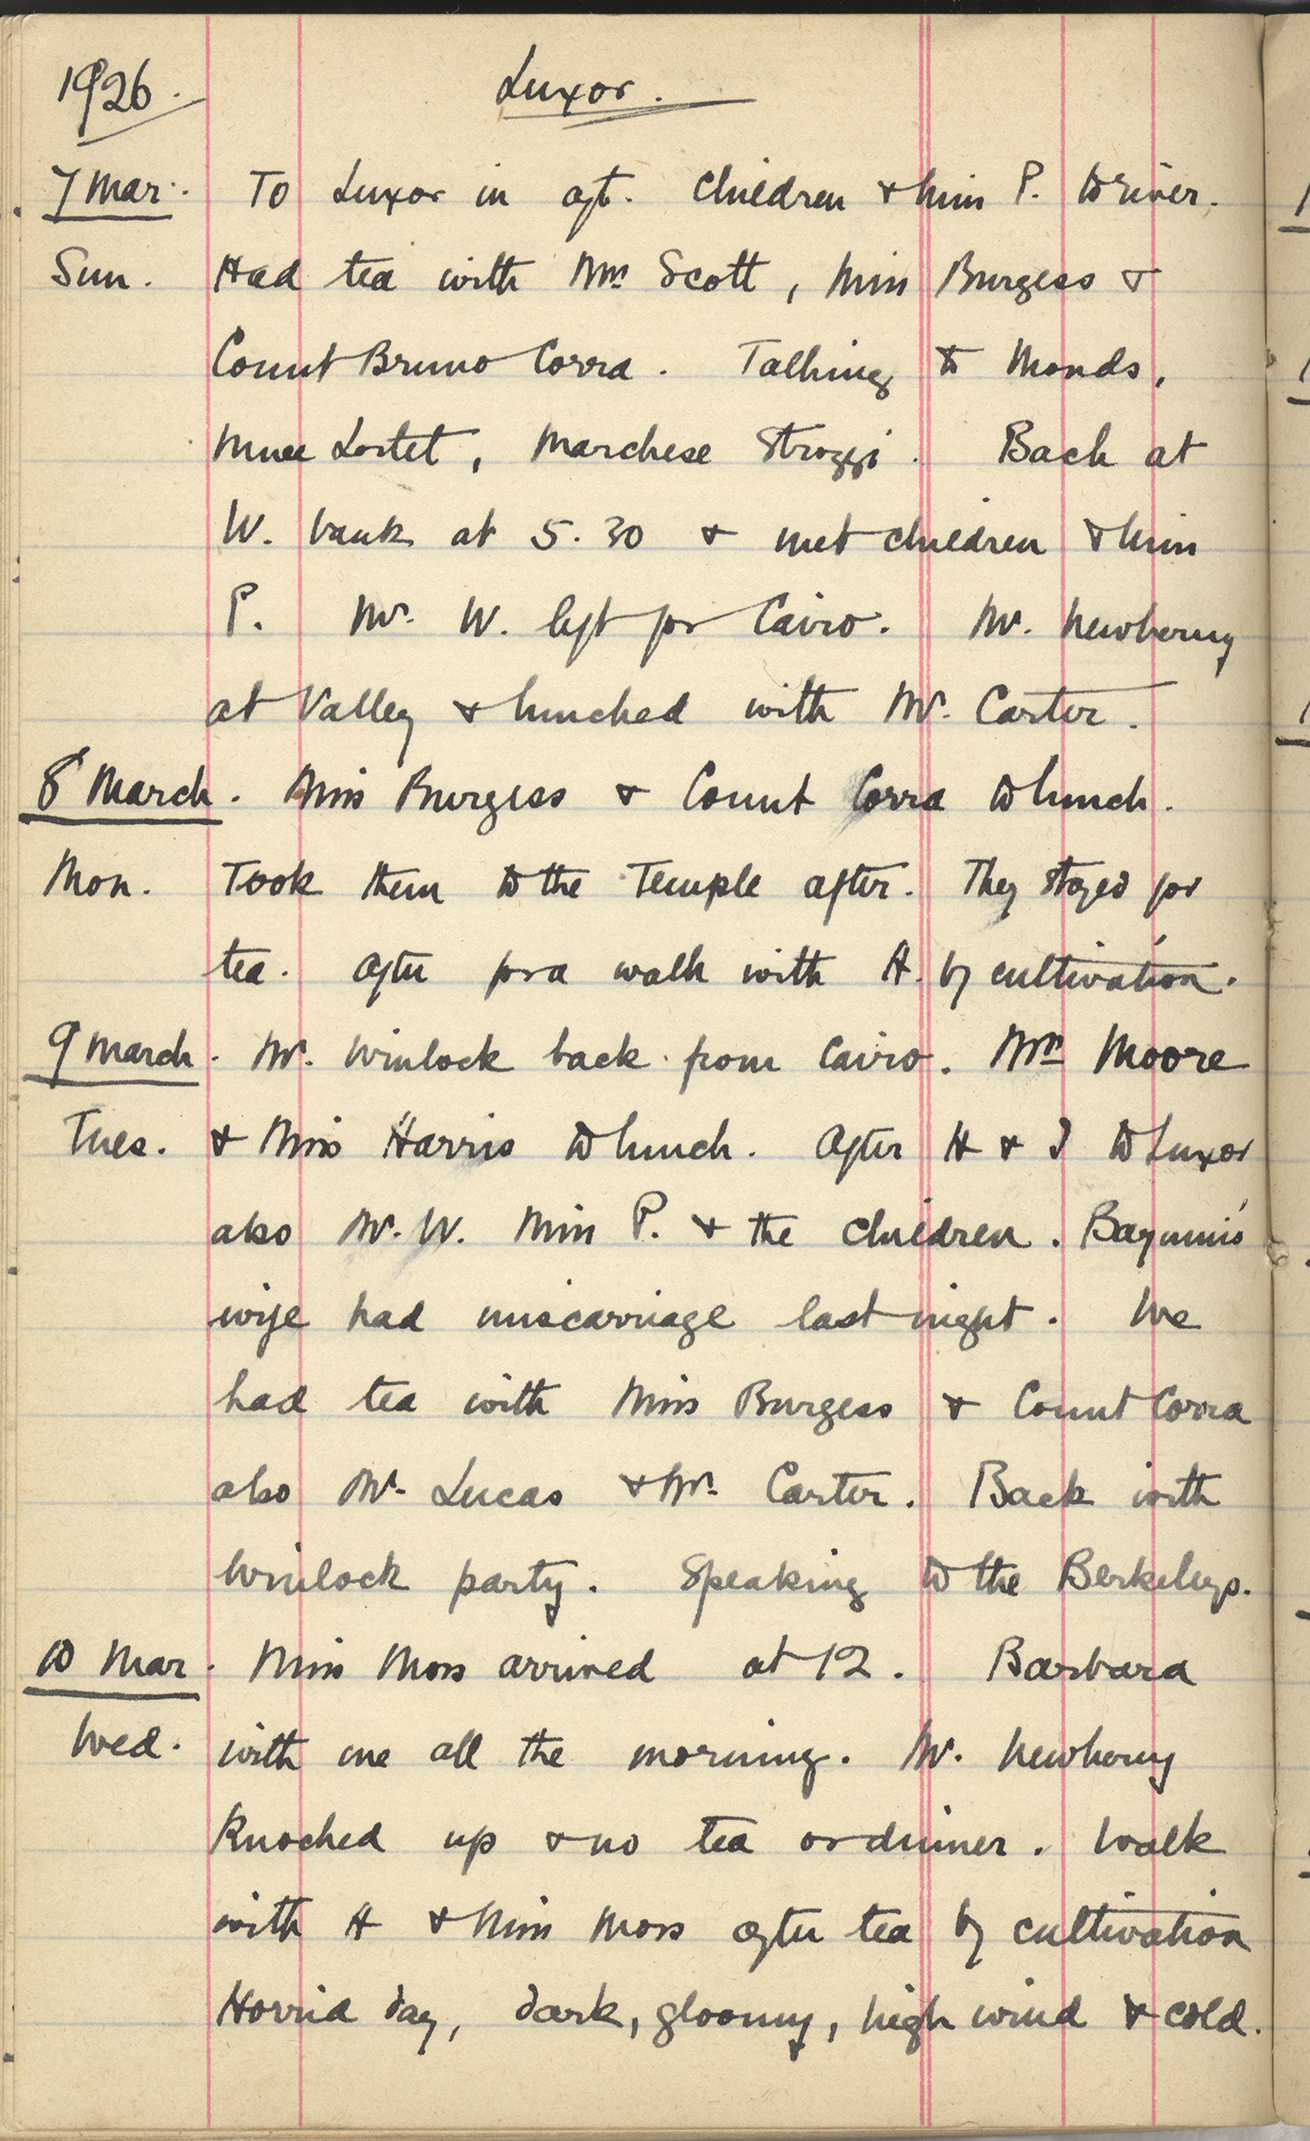 1926. Luxor.
7 Mar: To Luxor in aft. Children & Miss P. to river.
Sun. Had tea with Mrs Scott, Miss Burgess &
Count Bruno Corra. Talking to Monds,
Mme Lortet, Marchese Strozzi. Back at
W. bank at 5.30 & met children & Miss
P. Mr. W. left for Cairo. Mr. Newberry
at Valley & lunched with Mr. Carter.
8 March. Miss Burgess & Count Corra to lunch.
Mon. Took them to the Temple after. They stayed for
tea. After for a walk with H. by cultivation.
9 March. Mr. Winlock back from Cairo. Mrs Moore
Tues. & Miss Harris to lunch. After H & I to Luxor
also Mr. W. Miss P. & the children. Bayumi's
wife had miscarriage last night. We
had tea with Miss Burgess & Count Corra
also Mr. Lucas & Mr. Carter. Back with
Winlock party. Speaking to the Berkeleys.
10 Mar. Miss Moss arrived at 12. Barbara
Wed. with me all the morning. Mr. Newberry
Knocked up & no tea or dinner. Walk
with H & Miss Moss after tea by cultivation
Horrid day, dark, gloomy, high wind & cold.